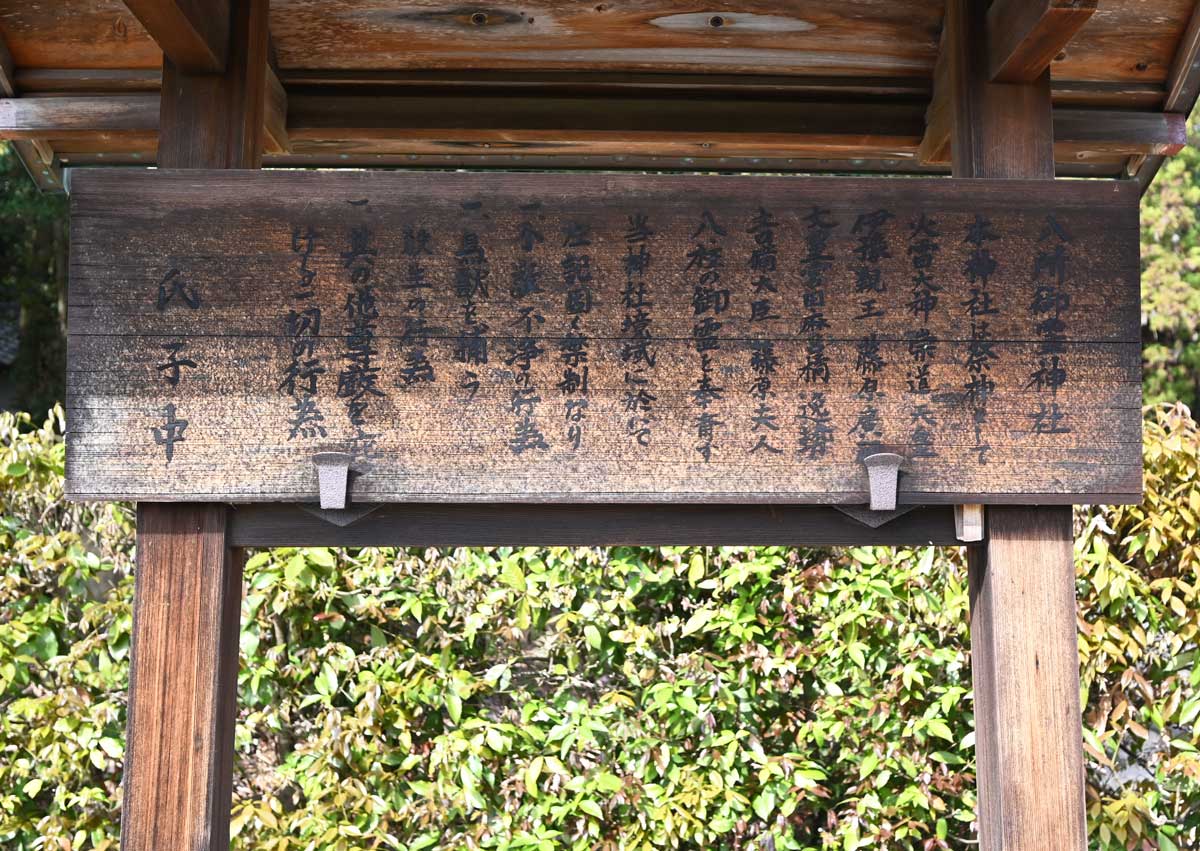 八所御霊神社
本神社は祭神として
火雷天神 崇道天皇
伊豫親王 藤原廣嗣
文室宮田麻呂 橘逸勢
吉備大臣 藤原夫人
八柱の御霊を奉斎す
当神社境域に於いて
左記固く禁制なり
一、不敬不浄の行為
一、鳥獣を捕う
殺生の行為
一、其の他尊厳を
ける一切の行為
氏子中